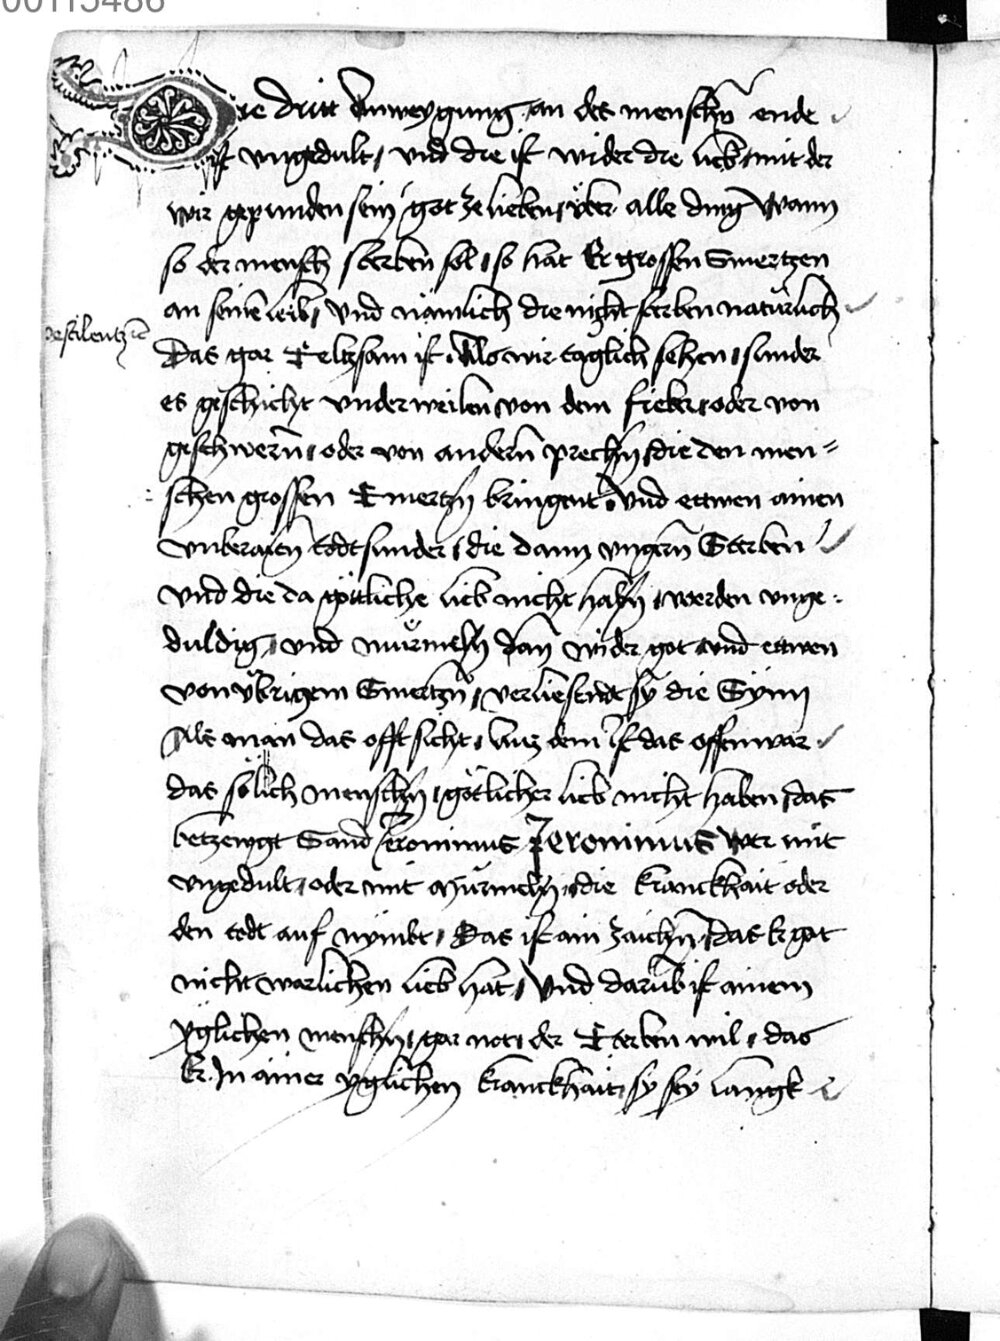 00115486
Die dritt Anweygung an des menschn ende
ist vngedult, vnd die ist wider die lieb, mit der
wir gepunden sein got ze lieben, vber alle ding Wann
so der mensch sterben sol, so hat Er grossen Smertzen
an seinē leib, Vnd nämlich die nicht sterben natürlich
pestilentzie
Das gar Seltzsam ist. Als wir täglich sehen, sunder
es geschicht vnderweilen von dem fieber, oder von
geschwern, oder von andern prechn, die den men=
schen grossen Smertzn bringent. Vnd ettwen ainen
vnberaiten todt sunder, die dann vngern Sterben
Vnd die da götliche lieb nicht habn, werden vnge:
duldig, vnd mürmeln dan wider got, vnd ettwen
von vbrigem Smertzn, verliesendt sy die Synn
Als man das offt sicht, Auz dem ist das offenwar
das sölich menschn, götlicher lieb nicht haben, das
betzewgt Sand Jeronimus Jeronimus Wer mit
vngedult, oder mit mürmeln, die kranckhait oder
den todt auf nymbt, Das ist ain zaichn, das er got
nicht warlichen lieb hat, Vnd darūb ist ainem
yglichen menschn, gar not, der Sterben wil, das
Er. In ainer yglichen kranckhait, sy sey langk